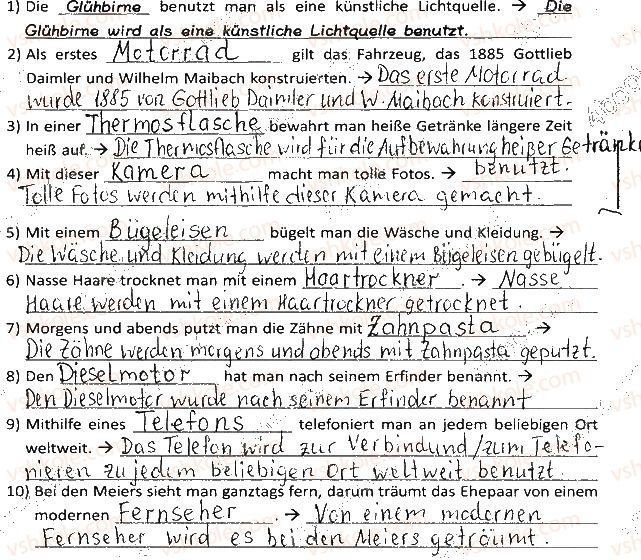 1) Die Glühbirne benutzt man als eine künstliche Lichtquelle. → Die
Glühbirne wird als eine künstliche Lichtquelle benutzt.
2) Als erstes Motorrad gilt das Fahrzeug, das 1885 Gottlieb
Daimler und Wilhelm Maibach konstruierten. → Das erste Motorrad
wurde 1885 von Gottlieb Daimler und W. Maiboch konstruiert.
3) In einer Thermosflasche bewahrt man heiße Getränke längere Zeit
heiß auf. → Die Thermosflasche wird für die Aufbewahrung heißer Getränke
4) Mit dieser Kamera macht man tolle Fotos. → benutzt.
Tolle Fotos werden mithilfe dieser Kamera gemacht.
5) Mit einem Bügeleisen bügelt man die Wäsche und Kleidung. →
Die Wäsche und Kleidung werden mit einem Bügeleisen gebügelt.
6) Nasse Haare trocknet man mit einem Haartrockner. → Nasse
Haare werden mit einem Haartrockner getrocknet.
7) Morgens und abends putzt man die Zähne mit Zahnpasta →
Die Zähne werden morgens und abends mit Zahnpasta geputzt.
8) Den Dieselmotor hat man nach seinem Erfinder benannt. →
Den Dieselmotor wurde nach seinem Erfinder benannt
9) Mithilfe eines Telefons telefoniert man an jedem beliebigen Ort
weltweit. → Das Telefon wird zur Verbindund/zum Telefo-
nieren zu jedem beliebigen Ort weltweit benutzt.
10) Bei den Meiers sieht man ganztags fern, darum träumt das Ehepaar von einem
modernen Fernseher. → Von einem modernen
Fernseher wird es bei den Meiers geträumt.